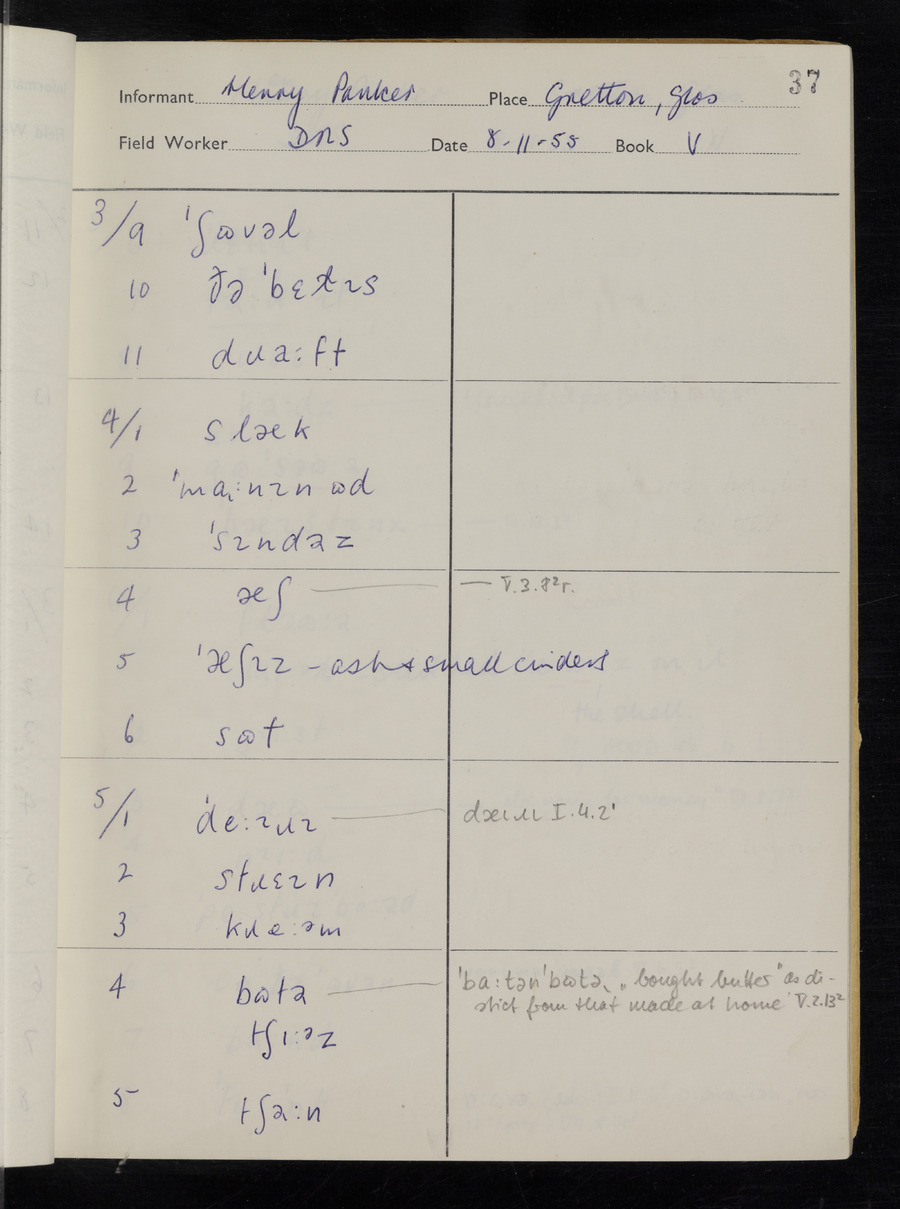 37
Informant Henry Parker Place Gretton, Glos
Field Worker DRS Date 8-11-55 Book V
3/9 ˈʃɷvəl
10 ðə ˈbɛɫɪs
11 dɹa:ft
4/1 slæk
2 ˈmaị:nɪn ɷd
3 ˈsɪndəz
4 æʃ — V.3.8²r.
5 ˈæʃɪz – ash & small cinders
6 sɷt
5/1 ˈde:ɪɹɪ dæɪɹɪ I.4.2'
2 stɹɛɪn
3 kɹe:əm
4 bɷtə ˈba:tən ˈbɷtə, „bought butter" as di-
stict from that made at home V.2.13²
tʃɪ:əz
5 tʃə:n